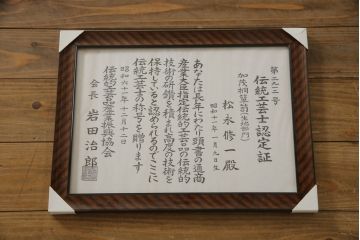 第二九三号
伝統工芸士認定証
加茂桐簞笥(生地部門)
松永修一殿
昭和十一年一月九日生
あなたは長年にわたり頭書の通商
産業大臣指定伝統的工芸品の伝統的
技術の研鑽を積まれ高度の技術を
保持していると認められるのでここに
伝統工芸士の称号を贈ります
昭和六十二年十二月十一日
伝統的工芸品産業振興協会
会長岩田治郎